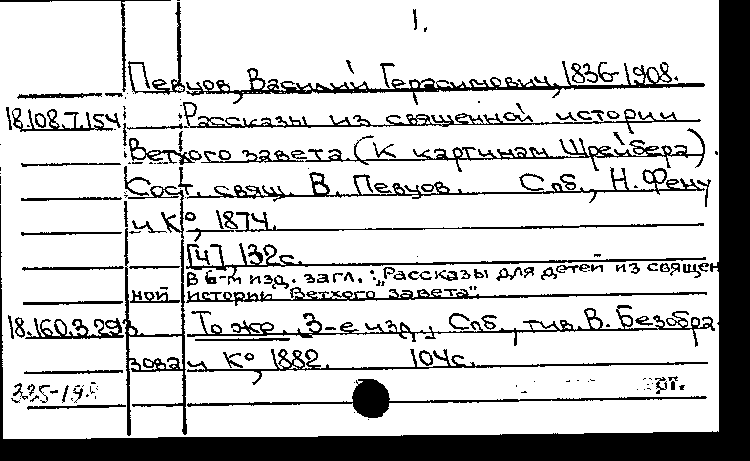 1.
Певцов, Василий Герасимович, 1836-1908.
18.108.7.154 Рассказы из священной истории
Ветхого завета. (К картинам Шрейбера).
Сост. свящ. В. Певцов. Спб., Н. Фену
и К°, 1874.
[4], 132 с.
В 6-м изд. загл.: „Рассказы для детей из священ
ной истории Ветхого завета".
18.160.3.293. То же. 3-е изд., Спб., тип. В. Безобра
зова и К°, 1882. 104 с.